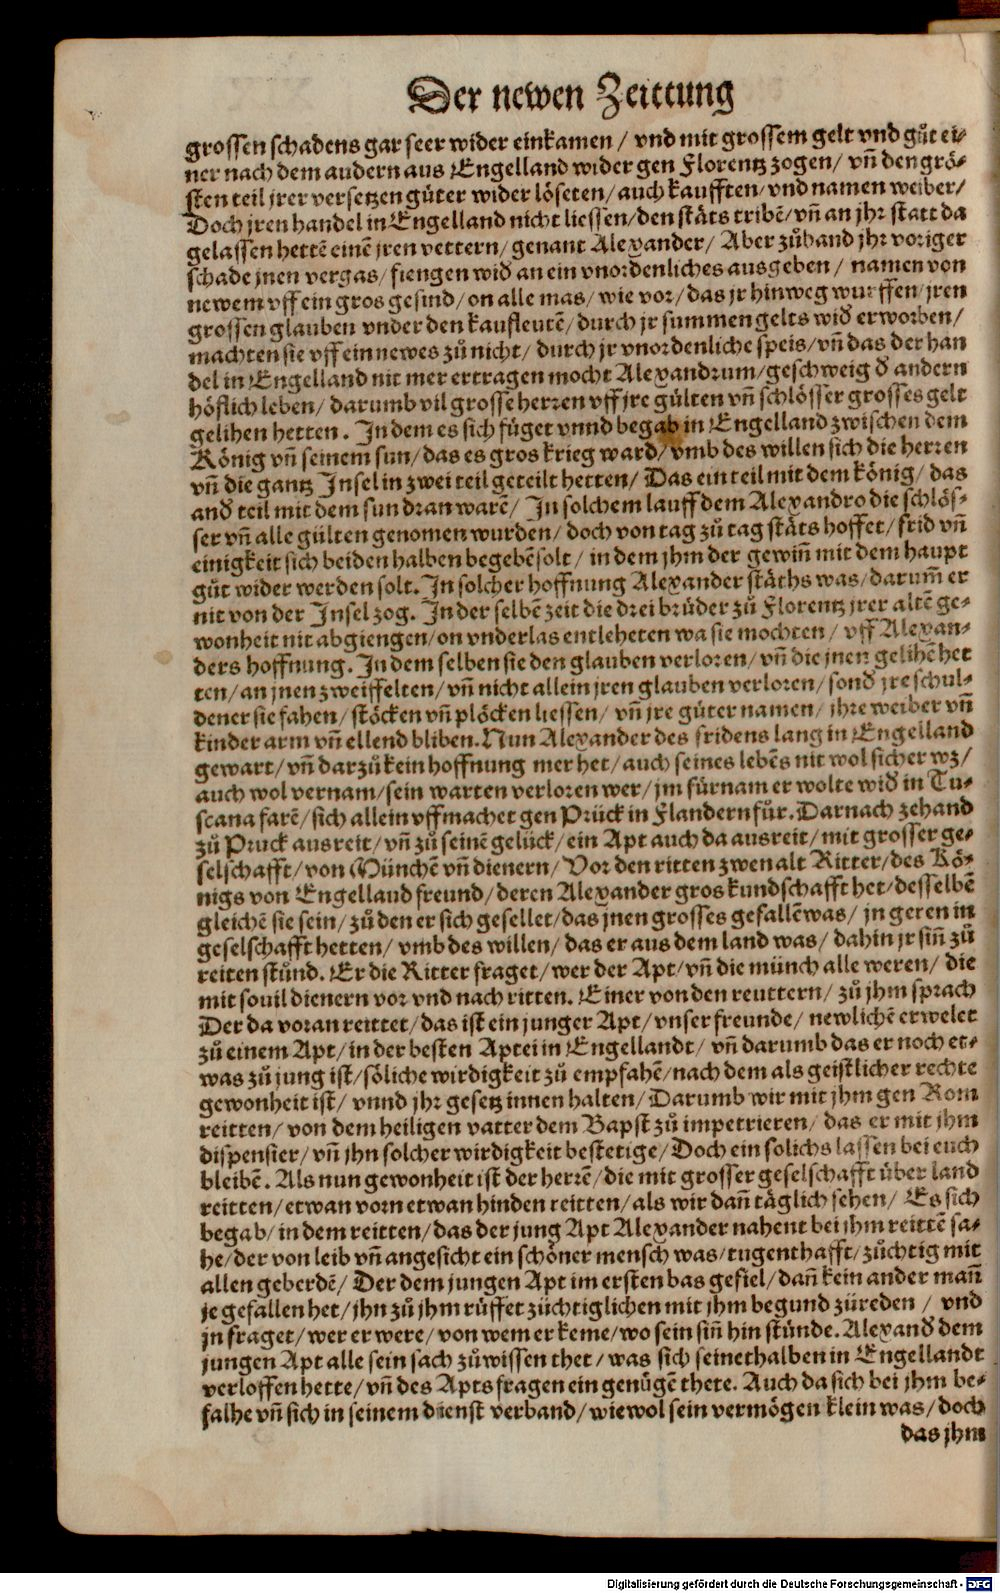 Der newen Zeittung
grossen schadens gar seer wider einkamen / vnd mit grossem gelt vnd gůt ei-
ner nach dem andern aus Engelland wider gen Florentz zogen / vñ den grö-
sten teil jrer versetzen güter wider löseten / auch kaufften / vnd namen weiber /
Doch jren handel in Engelland nicht liessen / den stäts tribẽ / vñ an jhr statt da
gelassen hettẽ einẽ jren vettern / genant Alexander / Aber zůhand jhr voriger
schade jnen vergas / fiengen wid an ein vnordenliches ausgeben / namen von
newem vff ein gros gesind / on alle mas / wie vor / das jr hinweg wurffen / jren
grossen glauben vnder den kaufleutẽ / durch jr summen gelts wid erworben /
machten sie vff ein newes zů nicht / durch jr vnordenliche speis / vñ das der han
del in Engelland nit mer ertragen mocht Alexandrum / geschweig d andern
höflich leben / darumb vil grosse herren vff jre gülten vñ schlösser grosses gelt
gelihen hetten. In dem es sich füget vnnd begab in Engelland zwischen dem
König vñ seinem sun / das es gros krieg ward / vmb des willen sich die herren
vñ die gantz Insel in zwei teil geteilt hetten / Das ein teil mit dem könig / das
and teil mit dem sun dran warẽ / In solchem lauff dem Alexandro die schlös-
ser vñ alle gülten genomen wurden / doch von tag zů tag stäts hoffet / frid vñ
einigkeit sich beiden halben begebẽ solt / in dem jhm der gewiñ mit dem haupt
gůt wider werden solt. In solcher hoffnung Alexander stäths was / darum̃ er
nit von der Insel zog. In der selbẽ zeit die drei brüder zů Florentz jrer altẽ ge-
wonheit nit abgiengen / on vnderlas entleheten wa sie mochten / vff Alexan-
ders hoffnung. In dem selben sie den glauben verloren / vñ die jnen gelihẽ het
ten / an jnen zweiffelten / vñ nicht allein jren glauben verloren / sond jre schul-
dener sie fahen / stöcken vñ plöcken liessen / vñ jre güter namen / jhre weiber vñ
kinder arm vñ ellend bliben. Nun Alexander des fridens lang in Engelland
gewart / vñ darzů kein hoffnung mer het / auch seines lebẽs nit wol sicher wz /
auch wol vernam / sein warten verloren wer / jm fürnam er wolte wid in Tu-
scana farẽ / sich allein vff machet gen Prück in Flandern für. Darnach zehand
zů Pruck ausreit / vñ zů seinẽ gelück / ein Apt auch da ausreit / mit grosser ge-
selschafft / von Münchẽ vñ dienern / Vor den ritten zwen alt Ritter / des Kö-
nigs von Engelland freund / deren Alexander gros kundschafft het / desselbẽ
gleichẽ sie sein / zů den er sich gesellet / das jnen grosses gefallẽ was / jn geren in
geselschafft hetten / vmb des willen / das er aus dem land was / dahin jr siñ zů
reiten stůnd. Er die Ritter fraget / wer der Apt / vñ die münch alle weren / die
mit souil dienern vor vnd nach ritten. Einer von den reuttern / zů jhm sprach
Der da voran reittet / das ist ein junger Apt / vnser freunde / newlichẽ erwelet
zů einem Apt / in der besten Aptei in Engellandt / vñ darumb das er noch et-
was zů jung ist / söliche wirdigkeit zů empfahẽ / nach dem als geistlicher rechte
gewonheit ist / vnnd jhr gesetz innen halten / Darumb wir mit jhm gen Rom
reitten / von dem heiligen vatter dem Bapst zů impetrieren / das er mit jhm
dispensier / vñ jhn solcher wirdigkeit bestetige / Doch ein solichs lassen bei euch
bleibẽ. Als nun gewonheit ist der herrẽ / die mit grosser geselschafft über land
reitten / etwan vorn etwan hinden reitten / als wir dañ täglich sehen / Es sich
begab / in dem reitten / das der jung Apt Alexander nahent bei jhm reittẽ sa-
he / der von leib vñ angesicht ein schöner mensch was / tugenthafft / züchtig mit
allen geberdẽ / Der dem jungen Apt im ersten bas gefiel / dañ kein ander mañ
je gefallen het / jhn zů jhm rüffet züchtiglichen mit jhm begund züreden / vnd
jn fraget / wer er were / von wem er keme / wo sein siñ hin stünde. Alexand dem
jungen Apt alle sein sach zůwissen thet / was sich seinethalben in Engellandt
verloffen hette / vñ des Apts fragen ein genügẽ thete. Auch da sich bei jhm be-
falhe vñ sich in seinem dienst verband / wiewol sein vermögen klein was / doch
das jhm
Digitalisierung gefördert durch die Deutsche Forschungsgemeinschaft - DFG